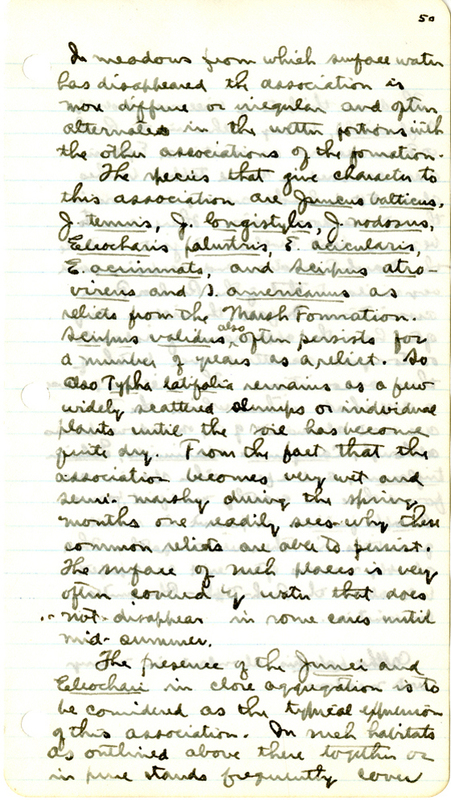 50
In meadows from which surface water
has disappeared the association is
more diffuse or irregular and often
alternates in the wetter portions with
the other associations of the formation.
The species that give character to
this association are Juncus balticus,
J. tenuis, J. longistylis, J. nodosus,
Eleocharis palustris, E. acicularis,
E. acuminata, and Scirpus atro-
virens and S. americanus as
relicts from the Marsh Formation.
Scirpus validus, also often persists for
a number of years as a relict. So
also Typha latifolia remains as a few
widely scattered clumps or individual
plants until the soil has become
quite dry. From the fact that the
association becomes very wet and
semi-marshy during the spring
months one readily sees why these
common relicts are able to persist.
The surface of such places is very
often covered by water that does
not disappear in some cases until
mid-summer.
The presence of the Junci and
Eleochari in close aggregation is to
be considered as the typical expression
of this association. In such habitats
as outlined above these together or
in pure stands frequently cover